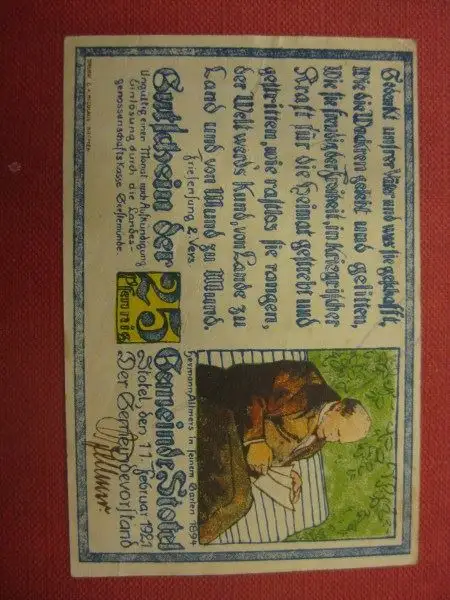 Gedenkt unsrer Väter und was sie geschafft,
Wie die Wackren gelebt und gelitten,
Wie sie freudig der Freiheit, in kriegrischer
Kraft für die Heimat gestrebt und
gestritten, wie rastlos sie rangen,
der Welt werds Kund, von Lande zu
Land und von Mund zu Mund.
Friesensang 2. Vers.
Hermann Allmers in seinem Garten 1894
Gutschein der
25
Pfennig
Gemeinde Stotel
Ungültig einen Monat nach Aufkündigung
Einlösung durch die Landes-
genossenschafts Kasse Geestemünde.
Stotel, den 11. Februar 1921
Der Gemeindevorstand
DRUCK